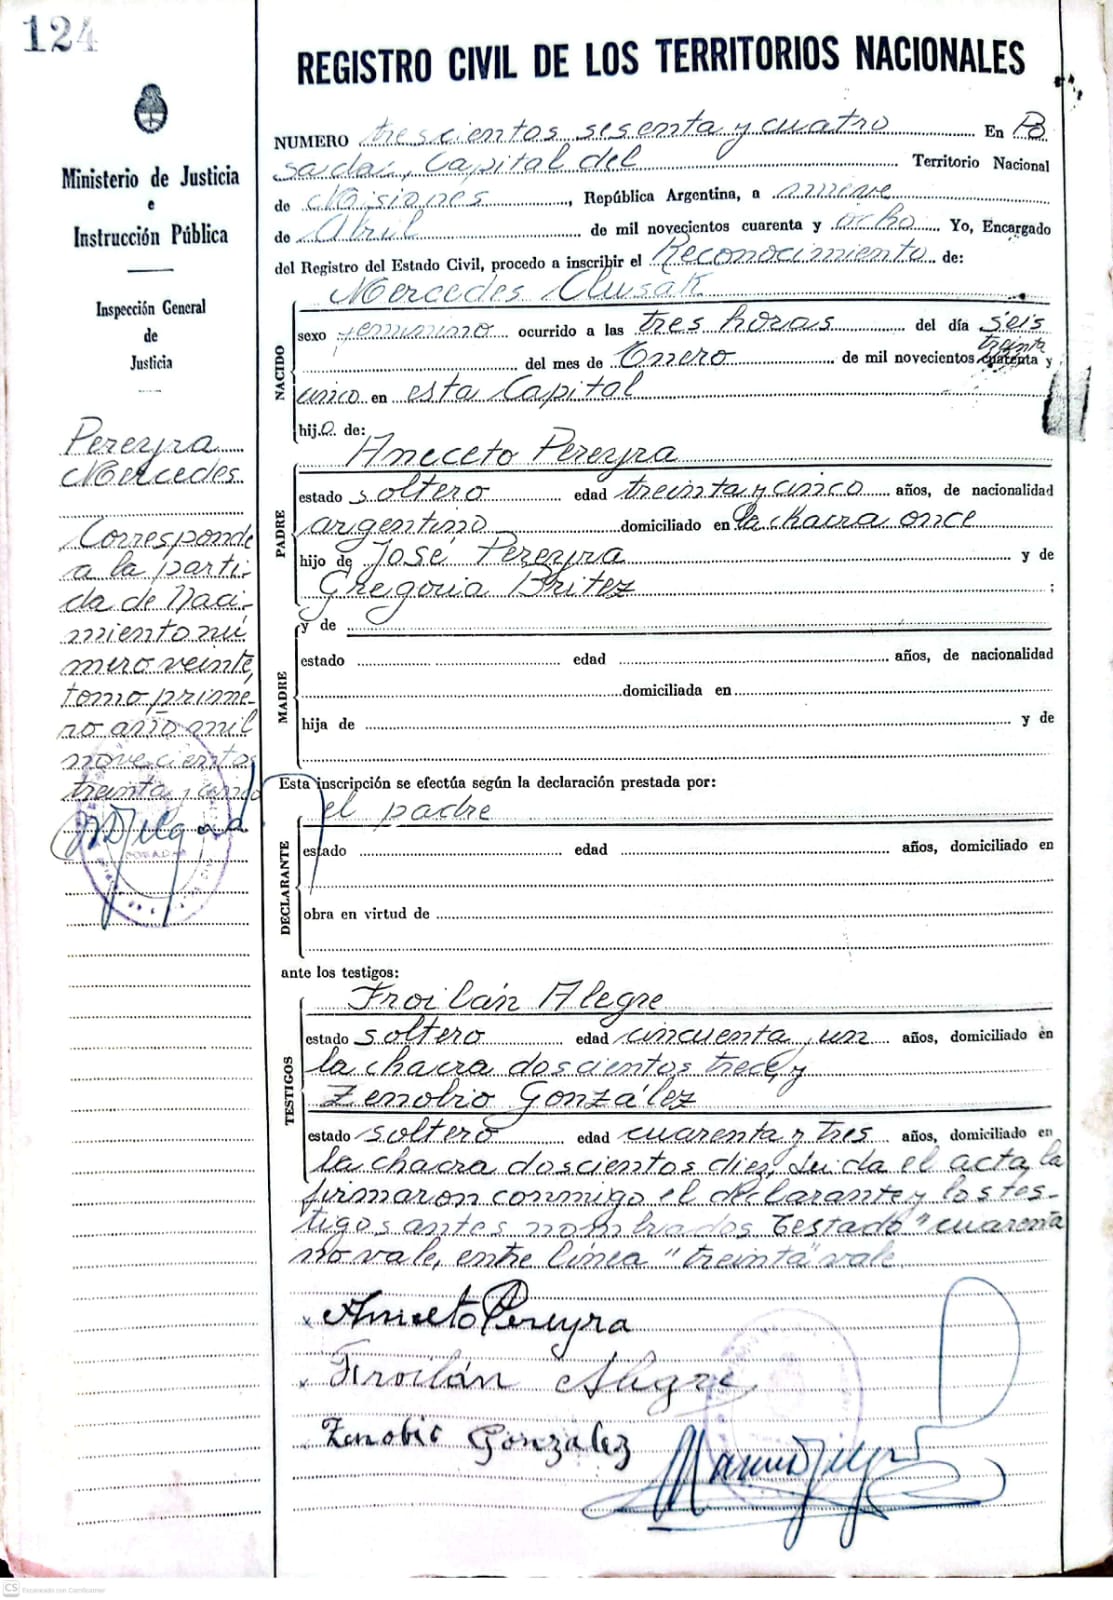 124
Ministerio de Justicia
e
Instrucción Pública
Inspección General
de
Justicia
Pereyra
Mercedes
Corresponde
a la parti-
da de Naci-
miento nú
mero veinte,
tomo prime-
ro año mil
novecientos
treinta y cinco
REGISTRO CIVIL DE LOS TERRITORIOS NACIONALES
NUMERO trescientos sesenta y cuatro En Po
sadas, Capital del Territorio Nacional
de Misiones, República Argentina, a nueve
de Abril de mil novecientos cuarenta y ocho Yo, Encargado
del Registro del Estado Civil, procedo a inscribir el Reconocimiento de:
Mercedes
NACIDO
sexo femenino ocurrido a las tres horas del día seis
treinta
del mes de Enero de mil novecientos cuarenta y
cinco en esta Capital
hija de:
PADRE
Aneceto Pereyra
estado soltero edad treinta y cinco años, de nacionalidad
argentino domiciliado en la chacra once
hijo de José Pereyra y de
Gregoria Britez ;
MADRE
y de
estado edad años, de nacionalidad
domiciliada en
hija de y de
Esta inscripción se efectúa según la declaración prestada por:
el padre
DECLARANTE
estado edad años, domiciliado en
obra en virtud de
ante los testigos:
TESTIGOS
Froilán Alegre
estado soltero edad cincuenta y un años, domiciliado en
la chacra doscientos trece, y
Zenobio González
estado soltero edad cuarenta y tres años, domiciliado en
la chacra doscientos diez, Leída el acta, la
firmaron conmigo el declarante y los tes-
tigos antes nombrados Testado "cuarenta
no vale, entre línea "treinta" vale
Aniceto Pereyra
Froilán Alegre
Zenobio Gonzalez
CS Escaneado con CamScanner